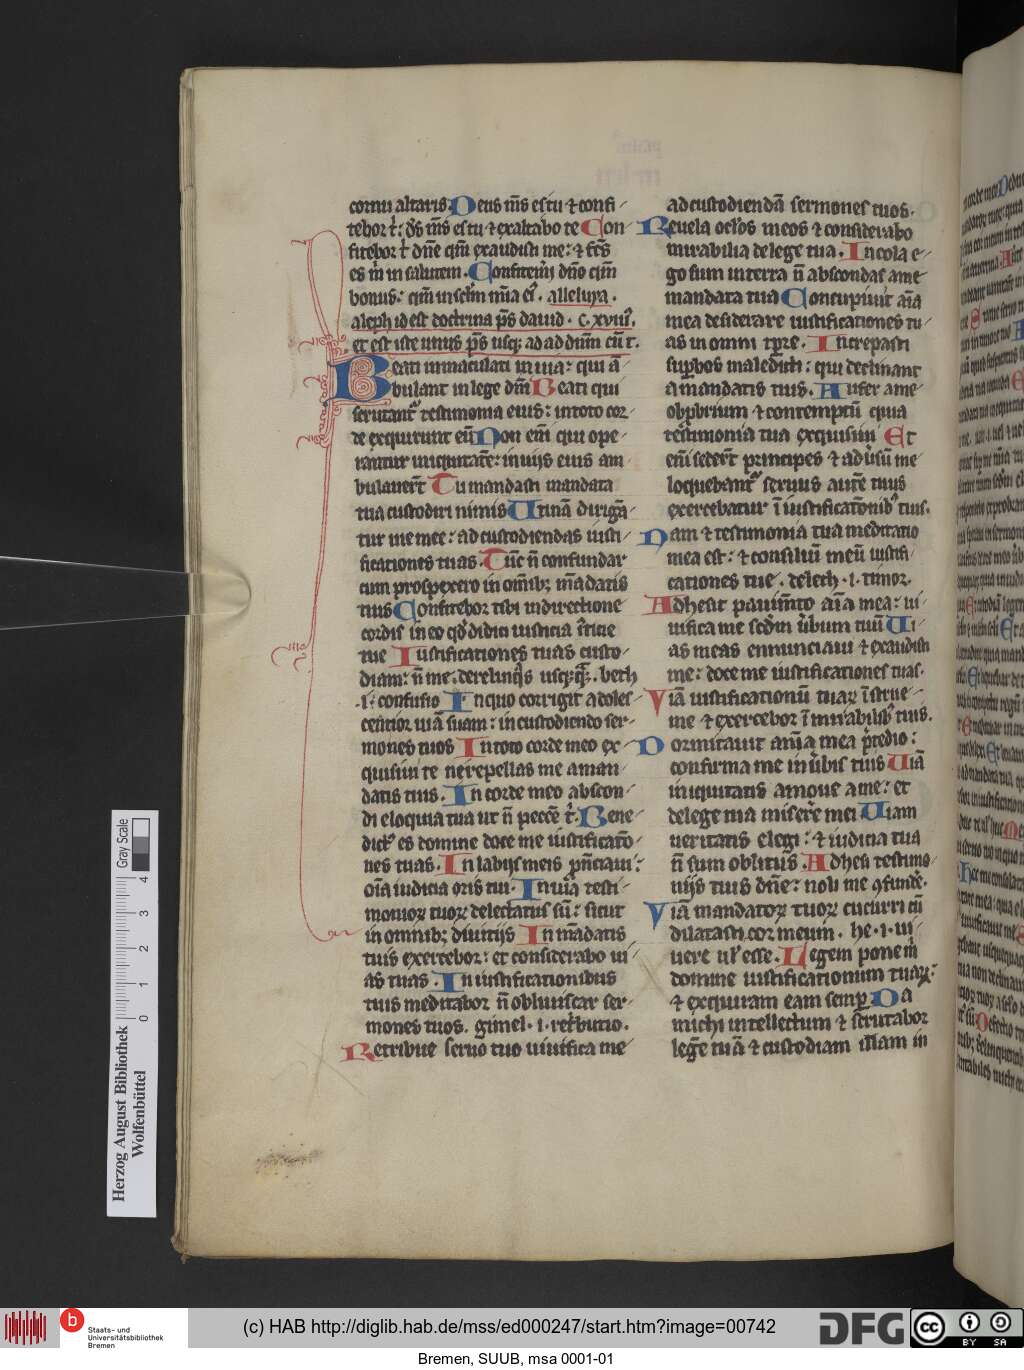 cornu altaris. Deus m̅s es tu ⁊ confi-
tebor t̾: d̅s m̅s es tu ⁊ exaltabo te Con-
fitebor t̾ dn̅e qm̅ exaudisti me: ⁊ fc̅s
es m̾ in salutem. Confitemi̅ dn̅o qm̅
bonus: qm̅ in sc̅lm mia̅ ei᾽. alleluya.
aleph id est doctrina p̅s dauid. c.xviii.
et est iste unus p̅s usq; ad ad dn̅m cu̅ t.
Beati inmaculati in uia: qui a̅-
bulant in lege dn̅i Beati qui
scrutant᷑ testimonia eius: in toto cor-
de exquirunt eu̅ Non em̅ qui ope-
rantur iniquitate̅: in uijs eius am-
bulauer̅t Tu mandasti mandata
tua custodiri nimis Utina̅ dirigа̅-
tur uie mee: ad custodiendas iusti-
ficationes tuas. Tu̅c n̅ confundar
cum prospexero in om̅ib; ma̅datis
tuis Confitebor tibi in directione
cordis in eo qd̅ didici iusticia iu̅sticie
tue Iustificationes tuas custo-
diam: n̅ me derelinqu̅s usq;q̅. beth
.i. confusio In quo corrigit adoles-
centior uia̅ suam: in custodiendo ser-
mones tuos In toto corde meo ex-
quisiui te ne repellas me a man-
datis tuis. In corde meo abscon-
di eloquia tua ut n̅ pecce̅ t̾. Bene-
dict᷒ es domine doce me iustificatо̅-
nes tuas. In labijs meis pn̅ciaui:
oi̅a iudicia oris tui. In uia̅ testi-
monioꝝ tuoꝝ delectatus su̅: sicut
in omnib; diuitijs In ma̅datis
tuis exercebor: et considerabo ui-
as tuas. In iustificationibus
tuis meditabor n̅ obliuiscar ser-
mones tuos. gimel. i. ret̾butio.
Retribue seruo tuo uiuifica me
ad custodienda̅ sermones tuos.
Reuela oc̅los meos ⁊ considerabo
mirabilia de lege tua. Incola e-
go sum in terra n̅ abscondas a me
mandata tua Concupiuit ai̅a
mea desiderare iustificationes tu-
as in omni tp̅re. Increpasti
sup̱bos maledicti: qui declinant
a mandatis tuis. Aufer a me
obp̱brium ⁊ contemptu̅ quia
testimonia tua exquisiui Et
em̅ seder̅t principes ⁊ adu̾su̅ me
loquebant᷑ seruus aute̅ tuus
exercebatur i̅ iustificato̅nib᷒ tuis.
Nam ⁊ testimonia tua meditatio
mea est: ⁊ consiliu̅ meu̅ iustifi-
cationes tue. deleth .i. timor.
Adhesit pauim̅to ai̅a mea: ui-
uifica me scd̅m u̾bum tuu̅ Ui-
as meas enunciaui ⁊ exaudisti
me: doce me iustificationes tuas.
Uia̅ iustificationu̅ tuaꝝ i̅strue
me ⁊ exercebor i̅ mirabilib᷒ tuis.
Dormitauit anі̅a mea p̾ tedio:
confirma me in u̾bis tuis Uia̅
iniquitatis amoue a me: et
de lege tua miser̅e mei Uiam
ueritatis elegi: ⁊ iudicia tua
n̅ sum oblitus. Adhesi testimo-
nijs tuis dn̅e: noli me ꝯfunde̾.
Uia̅ mandatoꝝ tuoꝝ cucurri cu̅
dilatasti cor meum. he .i. ui-
uere ul᷒ esse. Legem pone m̾
domine uiam iustificationum tuaꝝ:
⁊ exquiram eam semp̱ Da
michi intellectum ⁊ scrutabor
lege̅ tua̅ ⁊ custodiam illam in
Gray Scale
0 1 2 3 4
Herzog August Bibliothek
Wolfenbüttel
b Staats- und
Universitätsbibliothek
Bremen
(c) HAB http://diglib.hab.de/mss/ed000247/start.htm?image=00742
DFG
cc BY SA
Bremen, SUUB, msa 0001-01